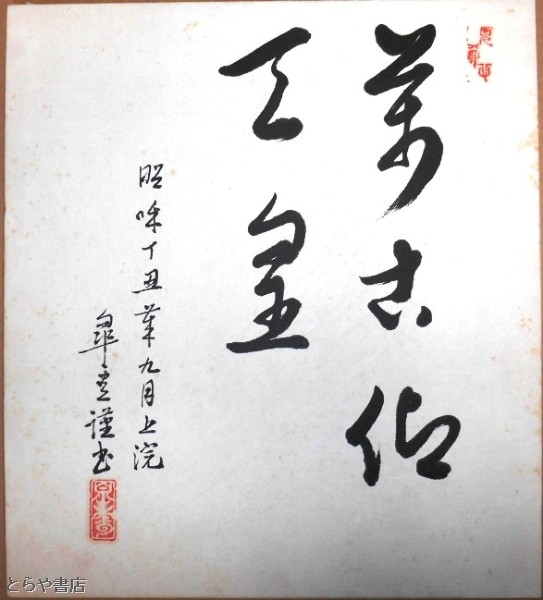 萬古仰
天皇
昭和丁丑菊九月上浣
皋堂謹書
とらや書店